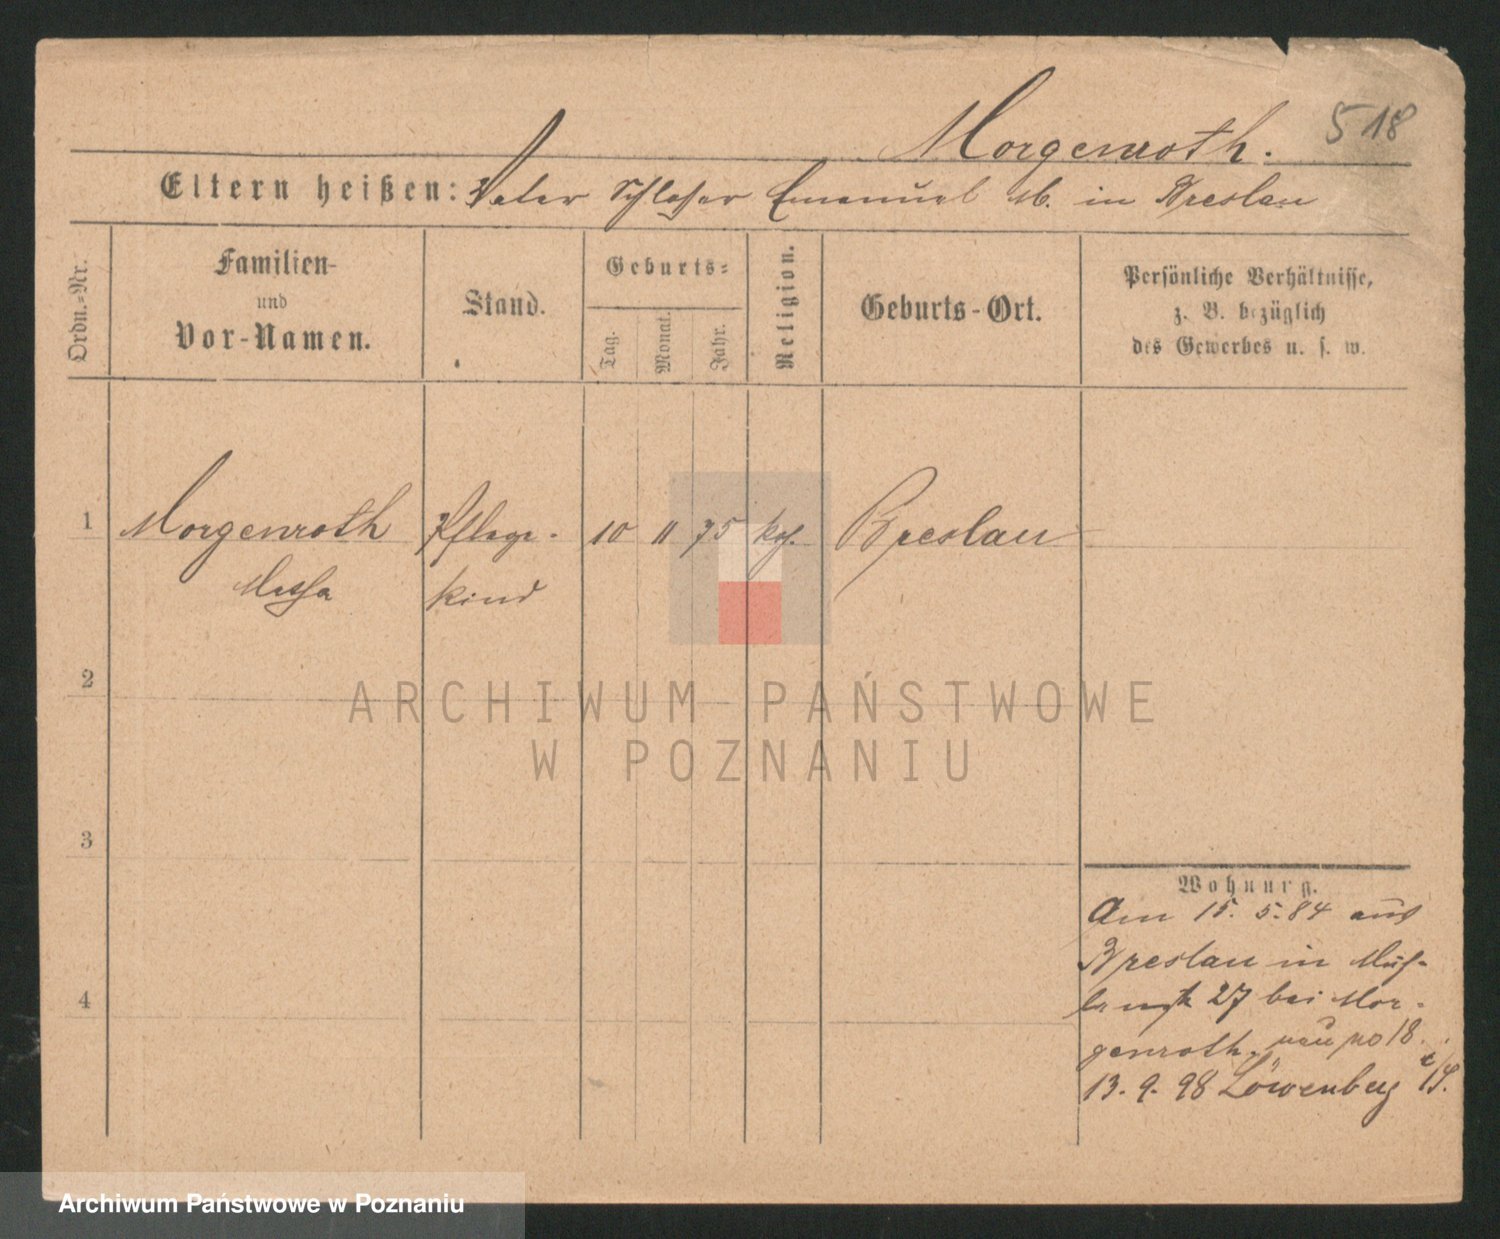 518
Morgenroth.
Eltern heißen: Vater Schlosser Emanuel M. in Breslau
Ordn.-Nr.
Familien-
und
Vor-Namen.
Stand.
Geburts-
Tag.
Monat.
Jahr.
Religion.
Geburts-Ort.
Persönliche Verhältnisse,
z. B. bezüglich
des Gewerbes u. s. w.
1 Morgenroth Pflege- 10 11 75 Breslau
kind
2
3
4
Wohnung.
Am 15. 5. 84 aus
Breslau in
27 bei Mor-
genroth. neu no 18.
13. 9. 98 Löwenberg i/S.
ARCHIWUM PAŃSTWOWE
W POZNANIU
Archiwum Państwowe w Poznaniu